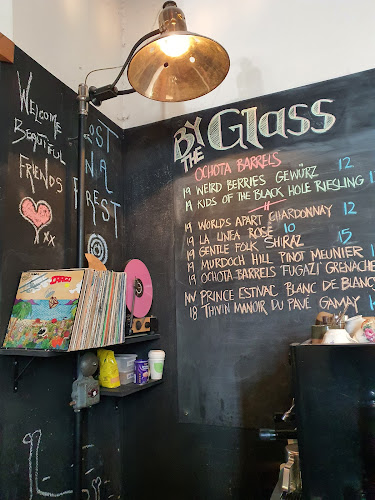 WELCOME
BEAUTIFUL
FRIENDS
xx
OST
N A
REST
BY THE Glass
OCHOTA BARRELS
19 WEIRD BERRIES GEWÜRZ 12
19 KIDS OF THE BLACK HOLE RIESLING 12
"
19 WORLDS APART CHARDONNAY 12
19 LA LINEA ROSÉ 10
19 GENTLE FOLK SHIRAZ 15
19 MURDOCH HILL PINOT MEUNIER
19 OCHOTA BARRELS FUGAZI GRENACHE
NV PRINCE ESTNAC BLANC DE BLANC
18 THIVIN MANOIR DU PAVÉ GAMAY